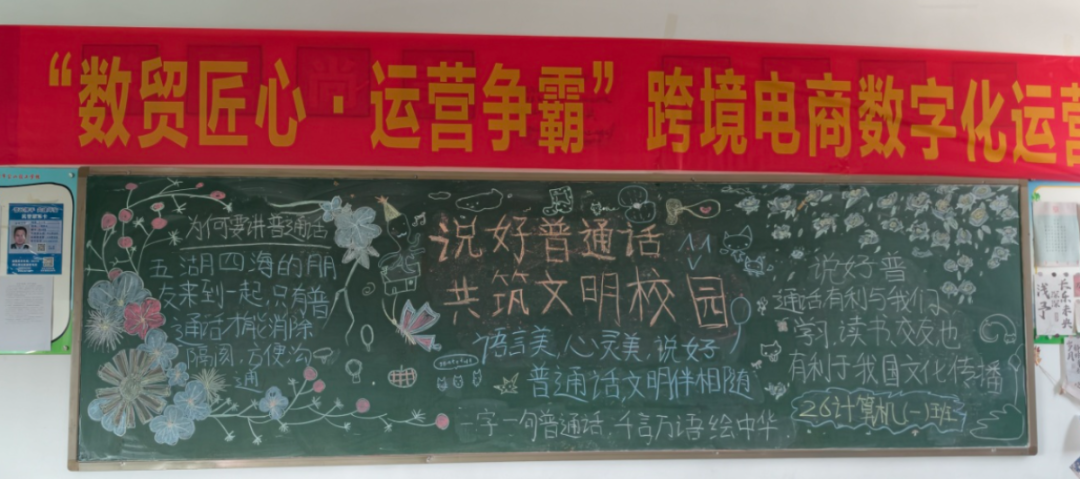 “数贸匠心·运营争霸” 跨境电商数字化运营
为何要讲普通话
五湖四海的朋
友来到一起,只有普
通话才能消除
隔阂,方便沟
通
说好普通话
共筑文明校园
语言美,心灵美,说好
普通话,文明伴相随
一字一句普通话,千言万语绘中华
说好普
通话有利与我们
学习,读书,交友也
有利于我国文化传播
26计算机(一)班